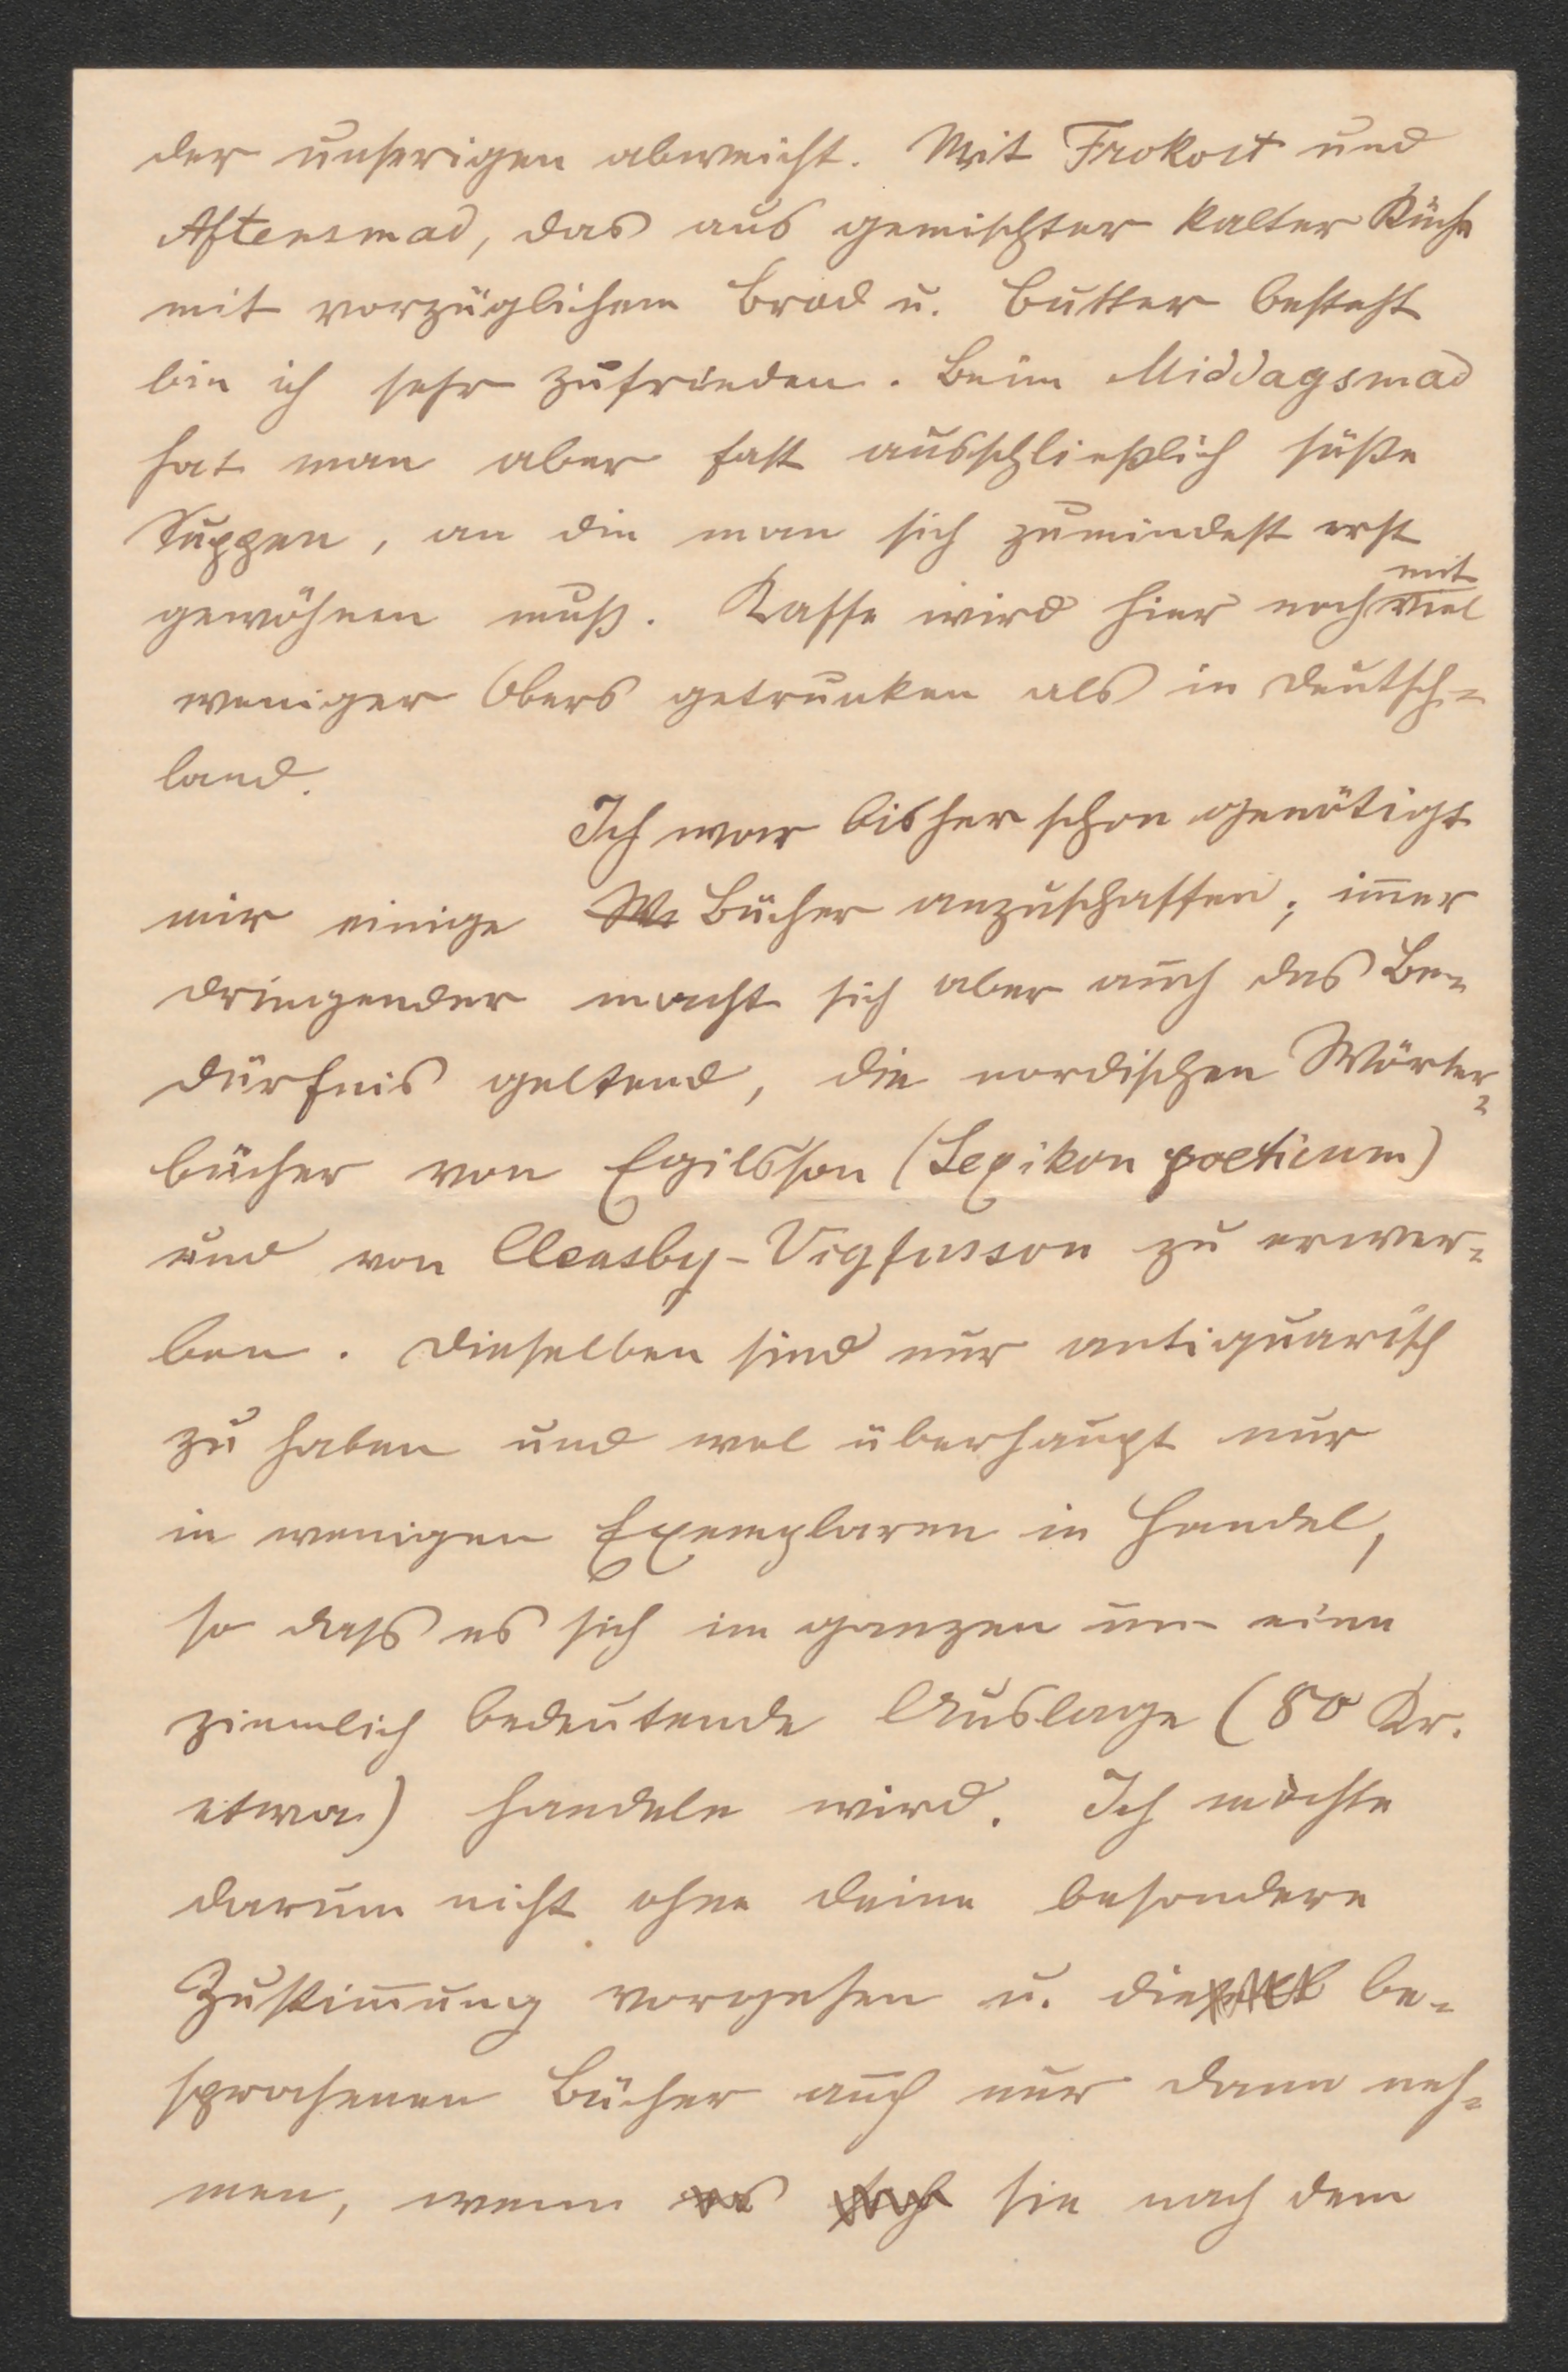 der unserigen abweicht. Mit Frokost und
Aftensmad, das aus gemischter kalter Küche
mit vorzüglichem Brod u. Butter besteht
bin ich sehr zufrieden. Beim Middagsmad
hat man aber fast ausschließlich süße
Suppen, an die man sich zumindest erst
gewöhnen muß. Kaffe wird hier noch mit viel
weniger Obers getrunken als in Deutsch-
land.
Ich war bisher schon genötigt
mir einige W Bücher anzuschaffen; im̅er
dringender macht sich aber auch das Be-
dürfnis geltend, die nordischen Wörter-
bücher von Egilsson (Lexikon poeticum)
und von Cleasby-Vigfusson zu erwer-
ben. Dieselben sind nur antiquarisch
zu haben und wol überhaupt nur
in wenigen Exemplaren in Handel,
so dass es sich im ganzen um eine
ziemlich bedeutende Auslage (80 Kr.
etwa) handeln wird. Ich möchte
darum nicht ohne deine besondere
Zustim̅ung vorgehen u. die be-
sprochenen Bücher auch nur dann neh-
men, wenn es sich sie nach dem